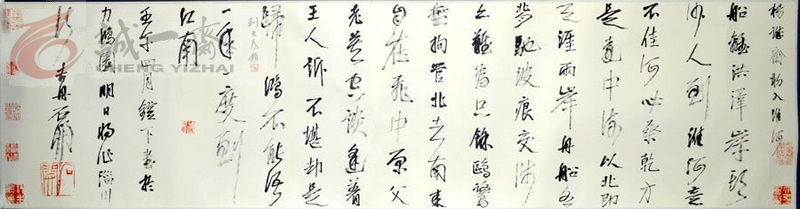 楊誠齋初入淮河
船離洪澤岸頭
沙人到淮河意
不佳何必桑乾方
是遠中流以北即
天涯兩岸舟船各
背馳波痕交涉
亦難為只餘鷗鷺
無拘管北去南來
自在飛中原父
老莫空談逢着
王人訴不堪却是
歸鴻不能語
一年一度到
江南
四月鐙下書於
明日將作淄川
誠一齋
CHENG YIZHAI